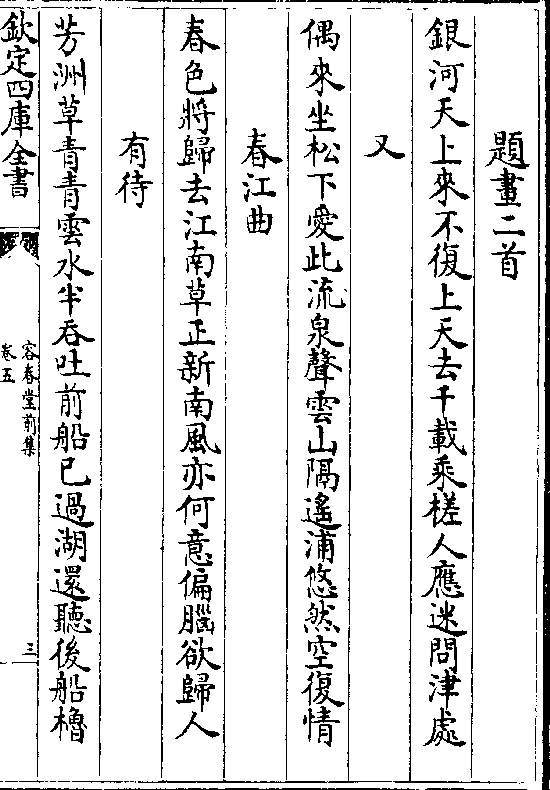 題畫二首
銀河天上來不復上天去千載乘槎人應迷問津處
又
偶來坐松下愛此流泉聲雲山隔遙浦悠然空復情
春江曲
春色將歸去江南草正新南風亦何意偏腦欲歸人
有待
芳洲草青青雲水半吞吐前船已過湖還聽後船櫓
欽定四庫全書
容春堂前集
卷五
三